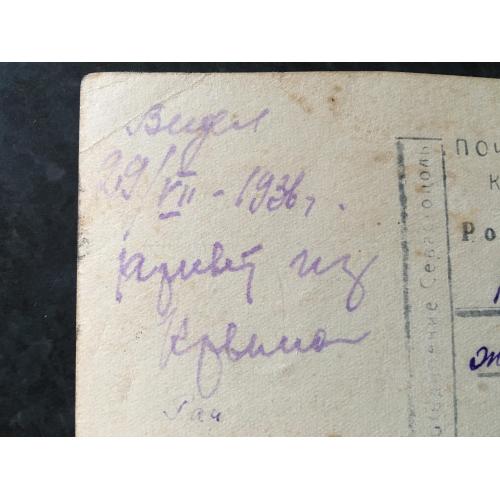 Видел
29/VII - 1936 г.
привет из
Крыма
поч
к
Ро
деление Севастополь